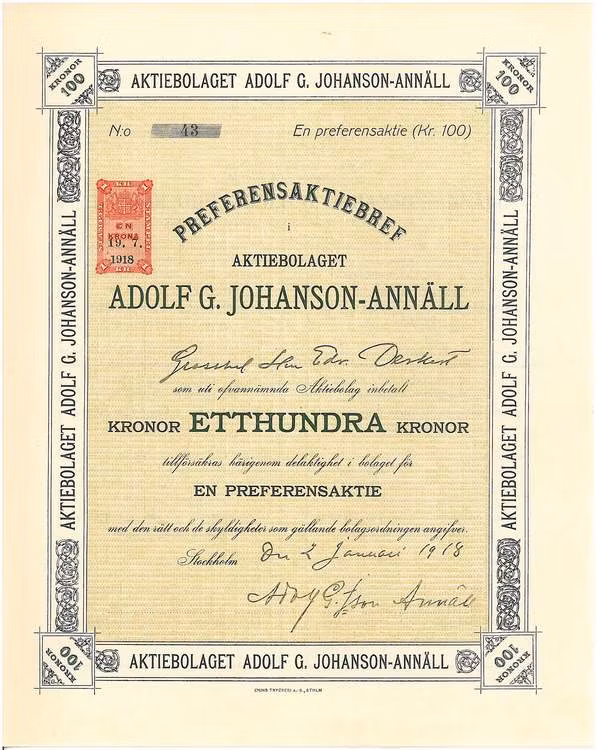 KRONOR 100
AKTIEBOLAGET ADOLF G. JOHANSON-ANNÄLL
KRONOR 100
N:o 43 En preferensaktie (Kr. 100)
EN
KRONA
19. 7.
1918
PREFERENSAKTIEBREF
i
AKTIEBOLAGET
ADOLF G. JOHANSON-ANNÄLL
Edv.
som uti ofvannämnda Aktiebolag inbetalt
KRONOR ETTHUNDRA KRONOR
tillförsäkras härigenom delaktighet i bolaget för
EN PREFERENSAKTIE
med den rätt och de skyldigheter som gällande bolagsordningen angifver.
Stockholm Den 2 Januari 1918
Adolf G. J:son Annäll
AKTIEBOLAGET ADOLF G. JOHANSON-ANNÄLL
AKTIEBOLAGET ADOLF G. JOHANSON-ANNÄLL
KRONOR 100
AKTIEBOLAGET ADOLF G. JOHANSON-ANNÄLL
KRONOR 100